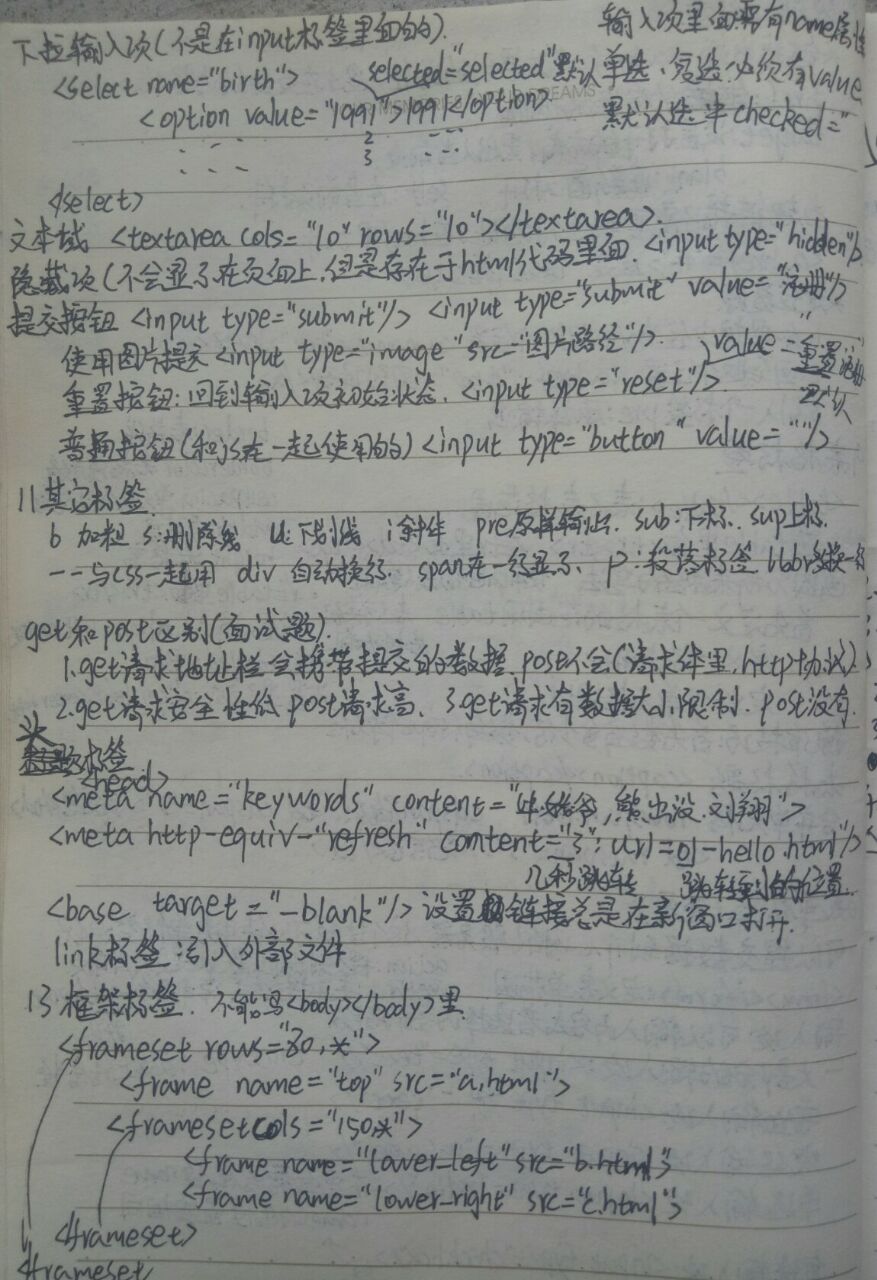 下拉输入项(不是在input标签里面的).
输入项里面需有name属性
<select name="birth">
selected="selected"默认
单选、复选必须有value
<option value="1991">1991</option>
默认选中checked="
2
3
</select>
文本域 <textarea cols="10" rows="10"></textarea>.
隐藏项(不会显示在页面上.但是存在于html代码里面. <input type="hidden"
提交按钮 <input type="submit"/> <input type="submit" value="注册"/>
使用图片提交 <input type="image" src="图片路径"/>.
value="重置
默认
重置按钮:回到输入项初始状态. <input type="reset"/>
普通按钮(和js在一起使用的) <input type="button" value=""/>
11其它标签.
b 加粗 s:删除线 u:下划线 i斜体 pre原样输出. sub:下标. sup上标.
--与css一起用 div 自动换行. span在一行显示、 p:段落标签
get和post区别(面试题).
1.get请求地址栏会携带提交的数据. post不会(请求体里.http协议)
2.get请求安全性低 post请求高、3.get请求有数据大小限制. post没有.
头
标签
<head>
<meta name="keywords" content="毕姥爷,熊出没.刘翔">
<meta http-equiv="refresh" content="3; url=01-hello.html"/>
几秒跳转 跳转到的位置
<base target="-blank"/> 设置链接总是在新窗口打开.
link标签:引入外部文件
13 框架标签. 不能写<body></body>里
<frameset rows="80,*">
<frame name="top" src="a.html">
<frameset cols="150,*">
<frame name="lower_left" src="b.html">
<frame name="lower_right" src="c.html">
</frameset>
</frameset